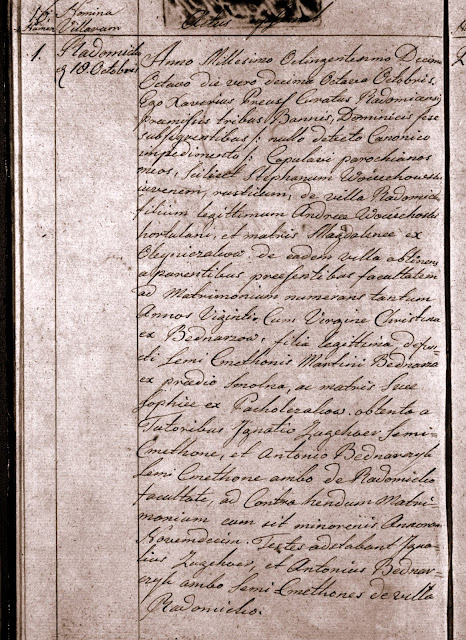 Nomina
Numer Villarum
Actus
1. Radomiclu
18. Octobris
Anno Millesimo Octingentesmo Decimo
Octavo die vero decima Octava Octobris.
Ego Xaverius Preuss Curatus Radomicensis
præmissis tribus Bannis, Dominicis sese
subsequentibus /: nullo detecto Canonico
impedimento :/ Copulavi parochianos
meos, scilicet Stephanum Woiciechowski
iuvenem, rusticum, de villa Radomiclu
filium legittimum Andrea Woiciechoski
hortulani, et matris Magdalenæ ex
Oleyniczakow de eadem villa obtinens
a parentibus præsentibus facultatem
ad Matrimonium numerans tantum
Annos Viginti. Cum Virgine Christina
ex Bednarzow, filia legittima defun-
cti Semi Cmethonis Martini Bednarza
ex prædio Smolna, ac matris suæ
Sophiæ ex Pacholczakow. obtento a
Tutoribus Ignatio Zugehoer, Semi-
Cmethone, et Antonio Bednarzyk
Semi Cmethone ambo de Radomiclo
facultate, ad Contrahendum Matri-
monium cum sit minorenis Annorum
Novemdecim. Testes adstabant Igna-
tius Zugehoer, et Antonius Bednar-
zyk ambo Semi Cmethones de villa
Radomiclio.